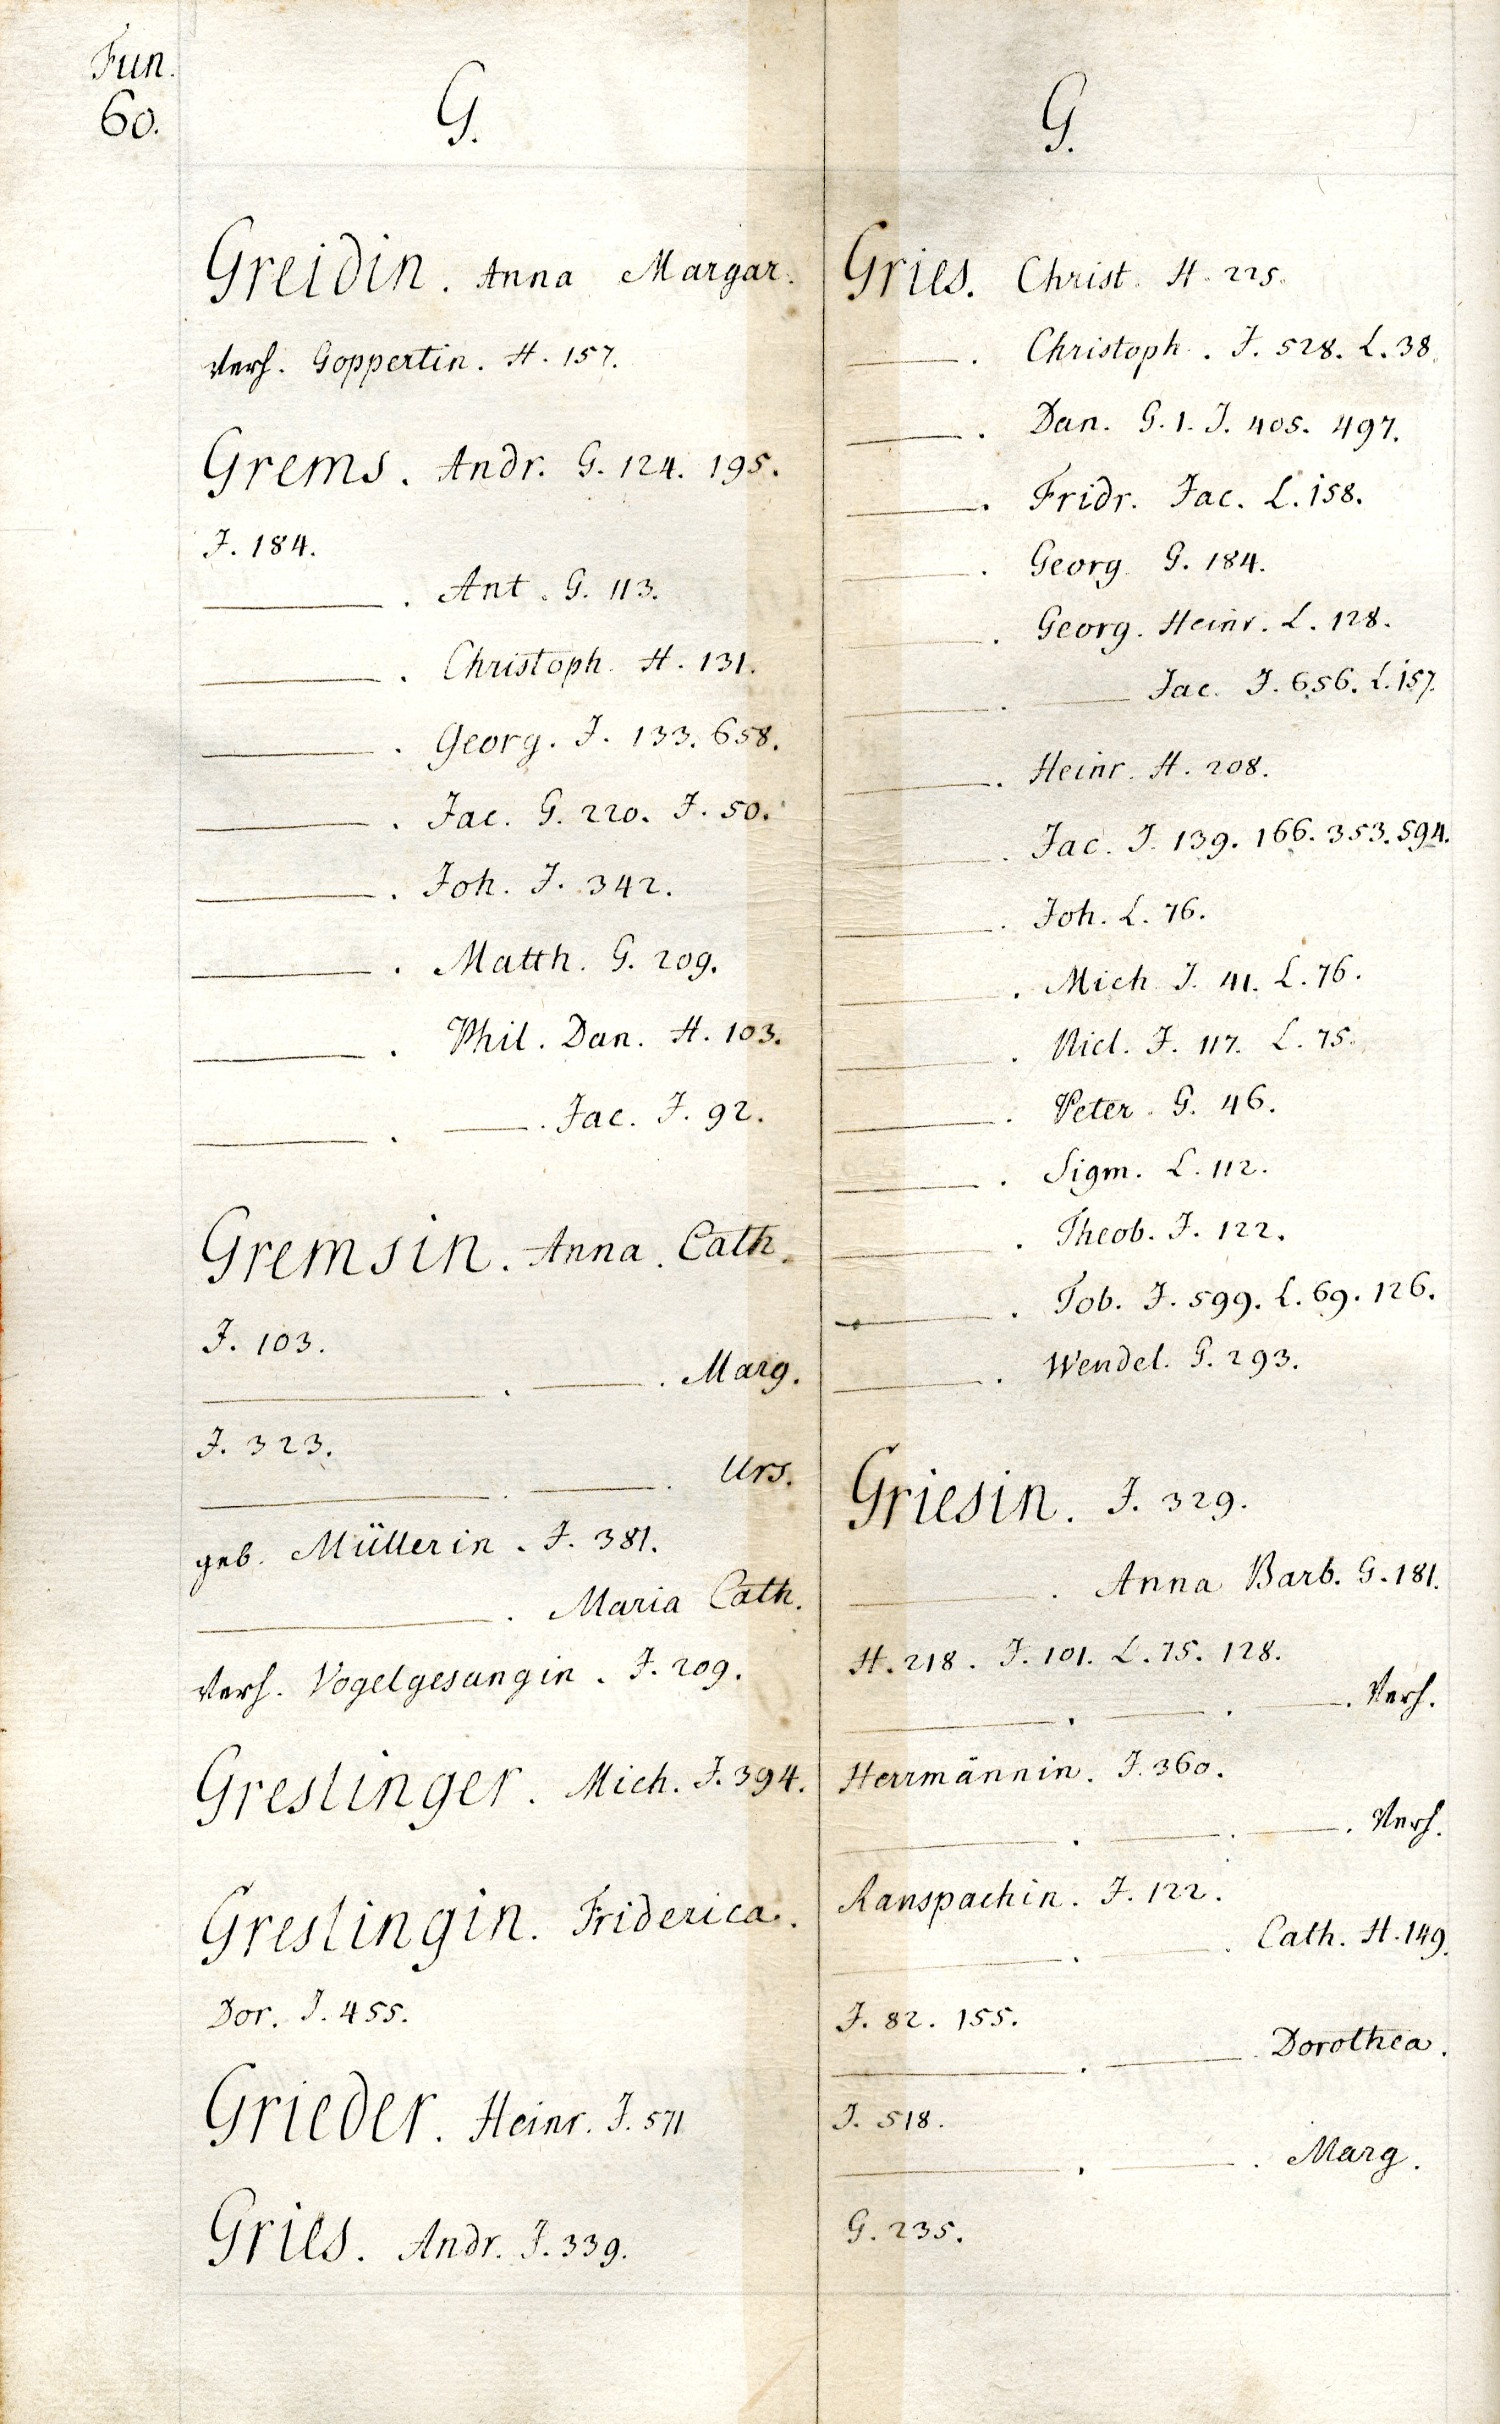 Fun.
60.
G.
Greidin. Anna Margar.
verh. Goppertin. H. 157.
Grems. Andr. G. 124. 195.
J. 184.
———. Ant. G. 113.
———. Christoph. H. 131.
———. Georg. J. 133. 658.
———. Jac. G. 220. J. 50.
———. Joh. J. 342.
———. Matth. G. 209.
———. Phil. Dan. H. 103.
———. ———. Jac. J. 92.
Gremsin. Anna. Cath.
J. 103.
———. ———. Marg.
J. 323.
———. ———. Urs.
geb. Müllerin. J. 381.
———. Maria Cath.
verh. Vogelgesangin. J. 209.
Greslinger. Mich. J. 394.
Greslingin. Friderica.
Dor. J. 455.
Grieder. Heinr. J. 571
Gries. Andr. J. 339.
G.
Gries. Christ. H. 225.
———. Christoph. J. 528. L. 38.
———. Dan. G. 1. J. 405. 497.
———. Fridr. Jac. L. 158.
———. Georg. G. 184.
———. Georg. Heinr. L. 128.
———. ——— Jac. J. 656. L. 157.
———. Heinr. H. 208.
———. Jac. J. 139. 166. 353. 594.
———. Joh. L. 76.
———. Mich. J. 41. L. 76.
———. Nicl. J. 117. L. 75.
———. Peter. G. 46.
———. Sigm. L. 112.
———. Theob. J. 122.
———. Tob. J. 599. L. 69. 126.
———. Wendel. G. 293.
Griesin. J. 329.
———. Anna Barb. G. 181.
H. 218. J. 101. L. 75. 128.
———. ———. ———. Verh.
Herrmännin. J. 360.
———. ———. ———. Verh.
Ranspachin. J. 122.
———. ———. Cath. H. 149.
J. 82. 155.
———. ———. Dorothea.
J. 518.
———. ———. Marg.
G. 235.